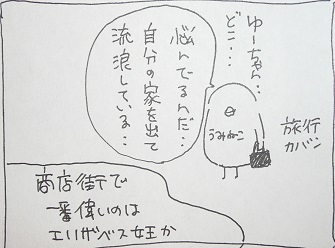 ゆーちゃん…
どこ…
悩んでるんだ…
自分の家を出て
流浪している…
うみねこ
旅行
カバン
商店街で
一番偉いのは
エリザベス女王か